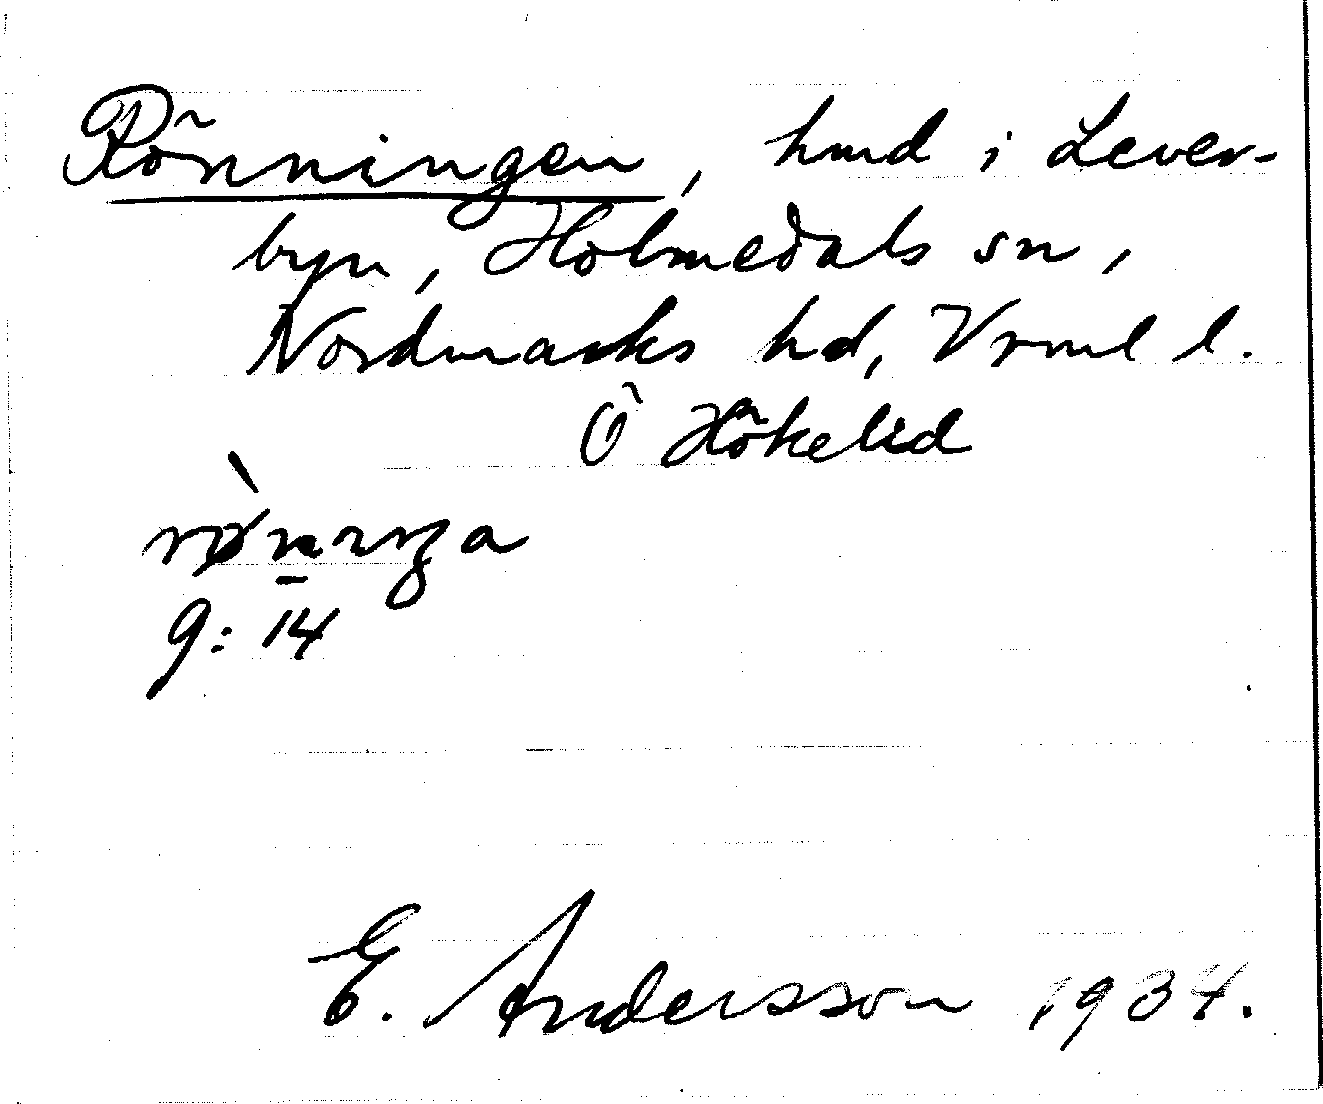 Rönningen, hmd i Lever-
byn, Holmedals sn,
Nordmarks hd, Vrml l.
Ö Hökelid
9:14
E. Andersson 1934.